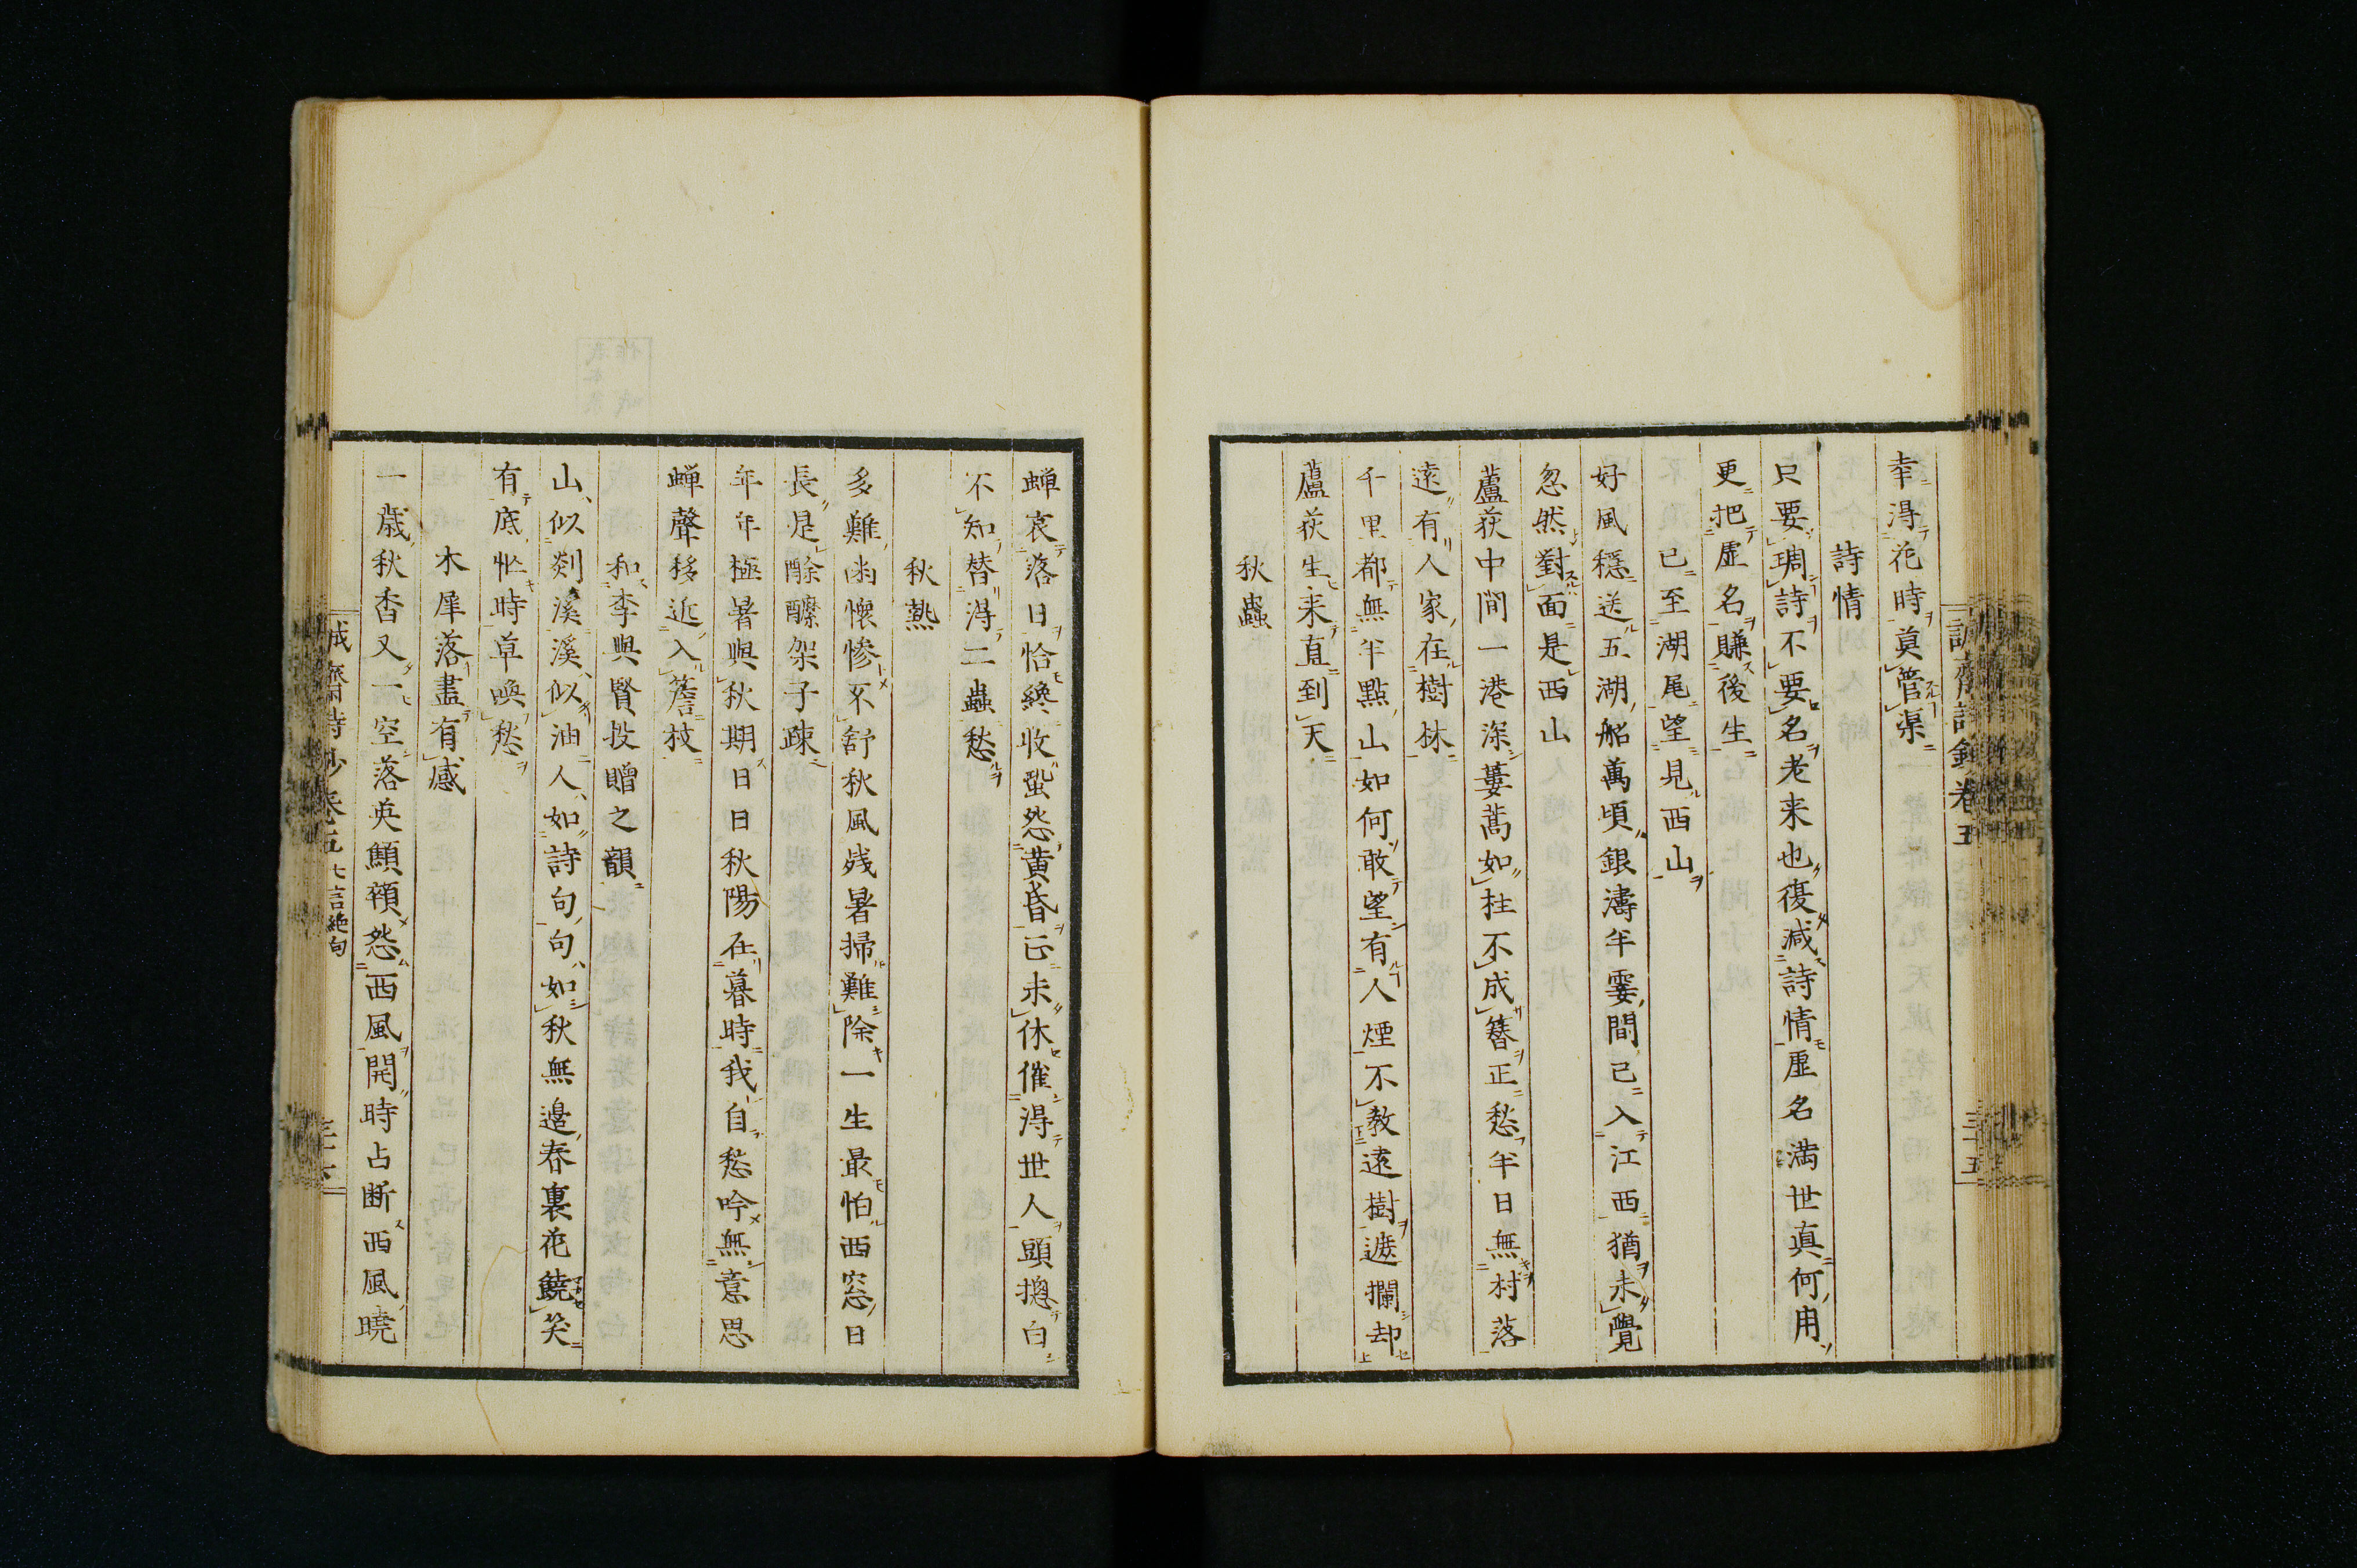 幸得花時莫管渠
詩情
只要琱詩不要名老来也復減詩情虛名満世真何用
更把虛名賺後生
已至湖尾望見西山
好風穩送五湖船萬頃銀濤半霎間已入江西猶未覺
忽然對面是西山
蘆荻中間一港深蔞蒿如柱不成簪正愁半日無村落
遠有人家在樹林
千里都無半點山如何敢望有人煙不教遠樹遮攔却
蘆荻生来直到天
秋蟲
蟬哀落日恰纔收蛩怨黄昏正未休催得世人頭摠白
不知替得二蟲愁
秋熱
多難幽懷慘不舒秋風残暑掃難除一生最怕西窓日
長是酴醾架子疎
年年極暑與秋期日日秋陽在暮時我自愁吟無意思
蟬聲移近入簷枝
和李與賢投贈之韻
山似剡溪溪似油人如詩句句如秋無邊春裏花饒笑
有底忙時草喚愁
木犀落盡有感
一歳秋香又一空落英顦顇怨西風開時占断西風曉
誠齋詩鈔卷五
三十五
誠齋詩鈔卷五 七言絶句
三十六